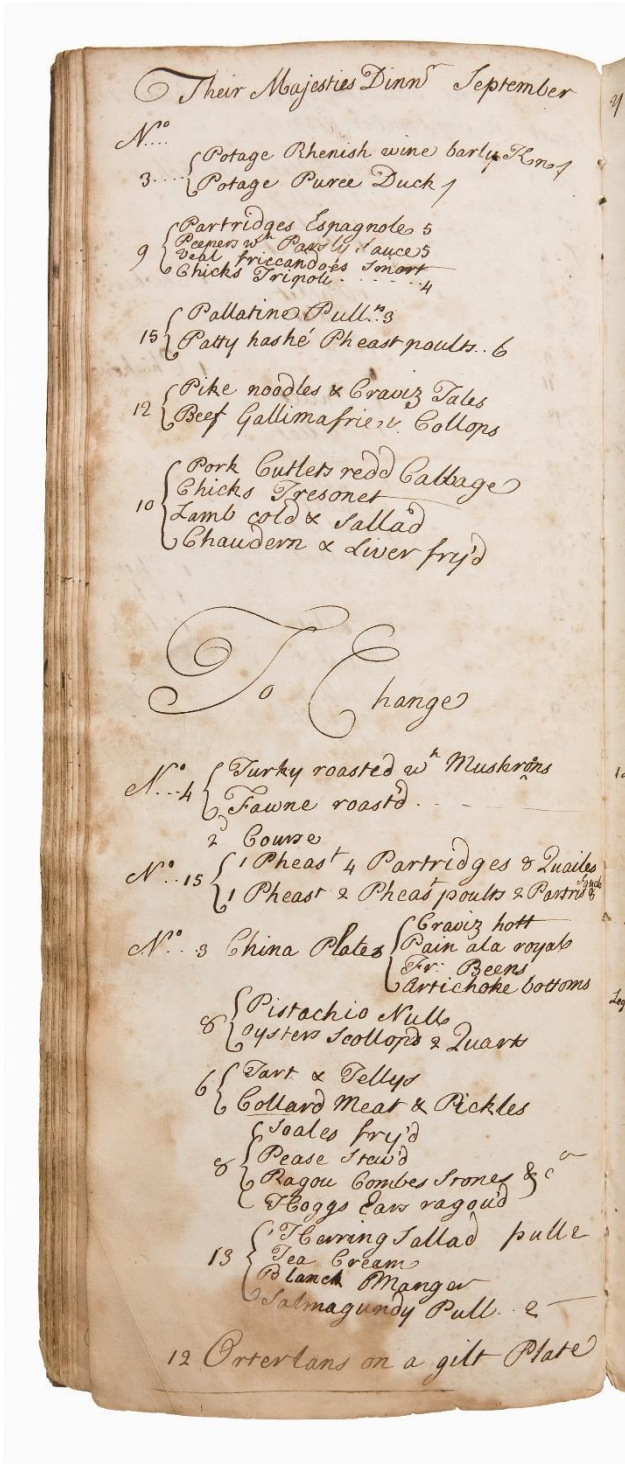 Their Majesties Dinnr September
No....
Potage Rhenish wine barly Kn 1
3.... Potage Puree Duck 1
Partridges Espagnole 5
Peepers wth Parsly Sauce 5
9 Veal friccandoes Smort
Chicks Tripoli ....... 4
Pallatine Pull.ts 3
15 Patty hashé Pheast poults.. 6
Pike noodles & Craviz Tales
12 Beef Gallimafrie Collops
Pork Cutlets redd Cabbage
Chicks Fresonet
10 Lamb cold & Sallad
Chaudern & Liver fry'd
To Change
No...4 Turky roasted wh Mushrōns
Fawne roastd
2d Course
No..15 1 Pheast 4 Partridges 8 Quailes
1 Pheast 2 Pheast poults 2 Partrid 8
No.. 3 China Plates Craviz hott
Pain ala royale
Fr: Beens
Artichoke bottoms
8 Pistachio Null
oysters Scollopd 2 Quarts
6 Tart & Jellys
Collard Meat & Pickles
Soales fry'd
8 Pease Stew'd
Ragou Combes Stones &c
Hoggs Ears ragou'd
Herring Sallad pulle
13 Tea Cream
Blanck Manger
Salmagundy Pull.. 2
12 Ortertans on a gilt Plate